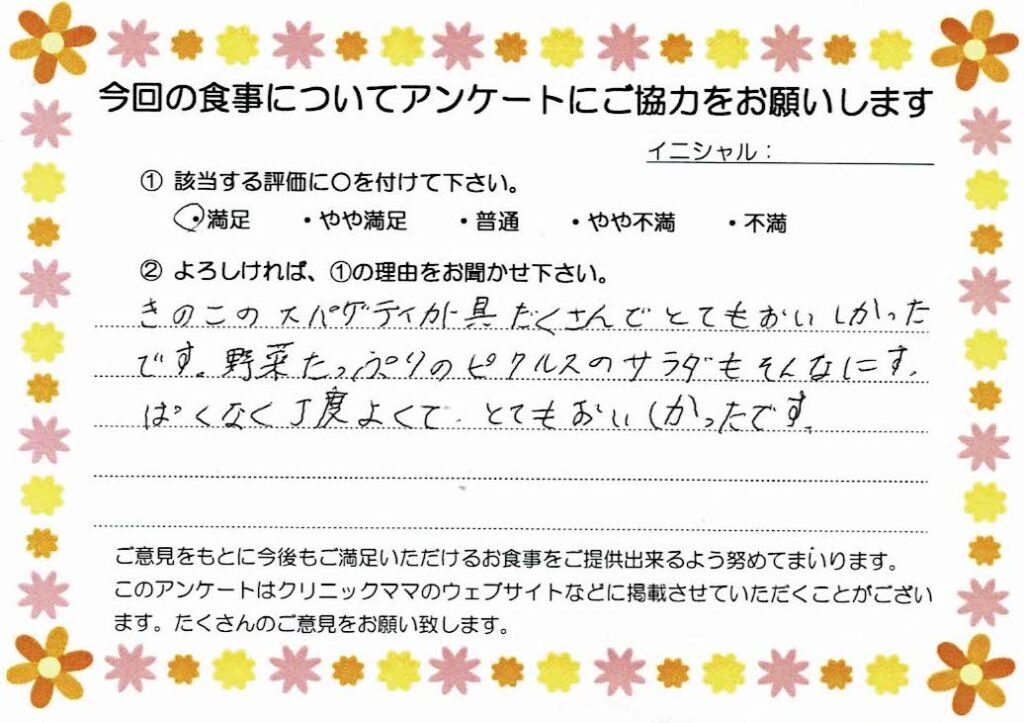 今回の食事についてアンケートにご協力をお願いします
イニシャル：
① 該当する評価に○を付けて下さい。
・満足 ・やや満足 ・普通 ・やや不満 ・不満
② よろしければ、①の理由をお聞かせ下さい。
きのこのスパゲティが具だくさんでとてもおいしかった
です。野菜たっぷりのピクルスのサラダもそんなにすっ
ぱくなく丁度よくて、とてもおいしかったです。
ご意見をもとに今後もご満足いただけるお食事をご提供出来るよう努めてまいります。
このアンケートはクリニックママのウェブサイトなどに掲載させていただくことがござい
ます。たくさんのご意見をお願い致します。